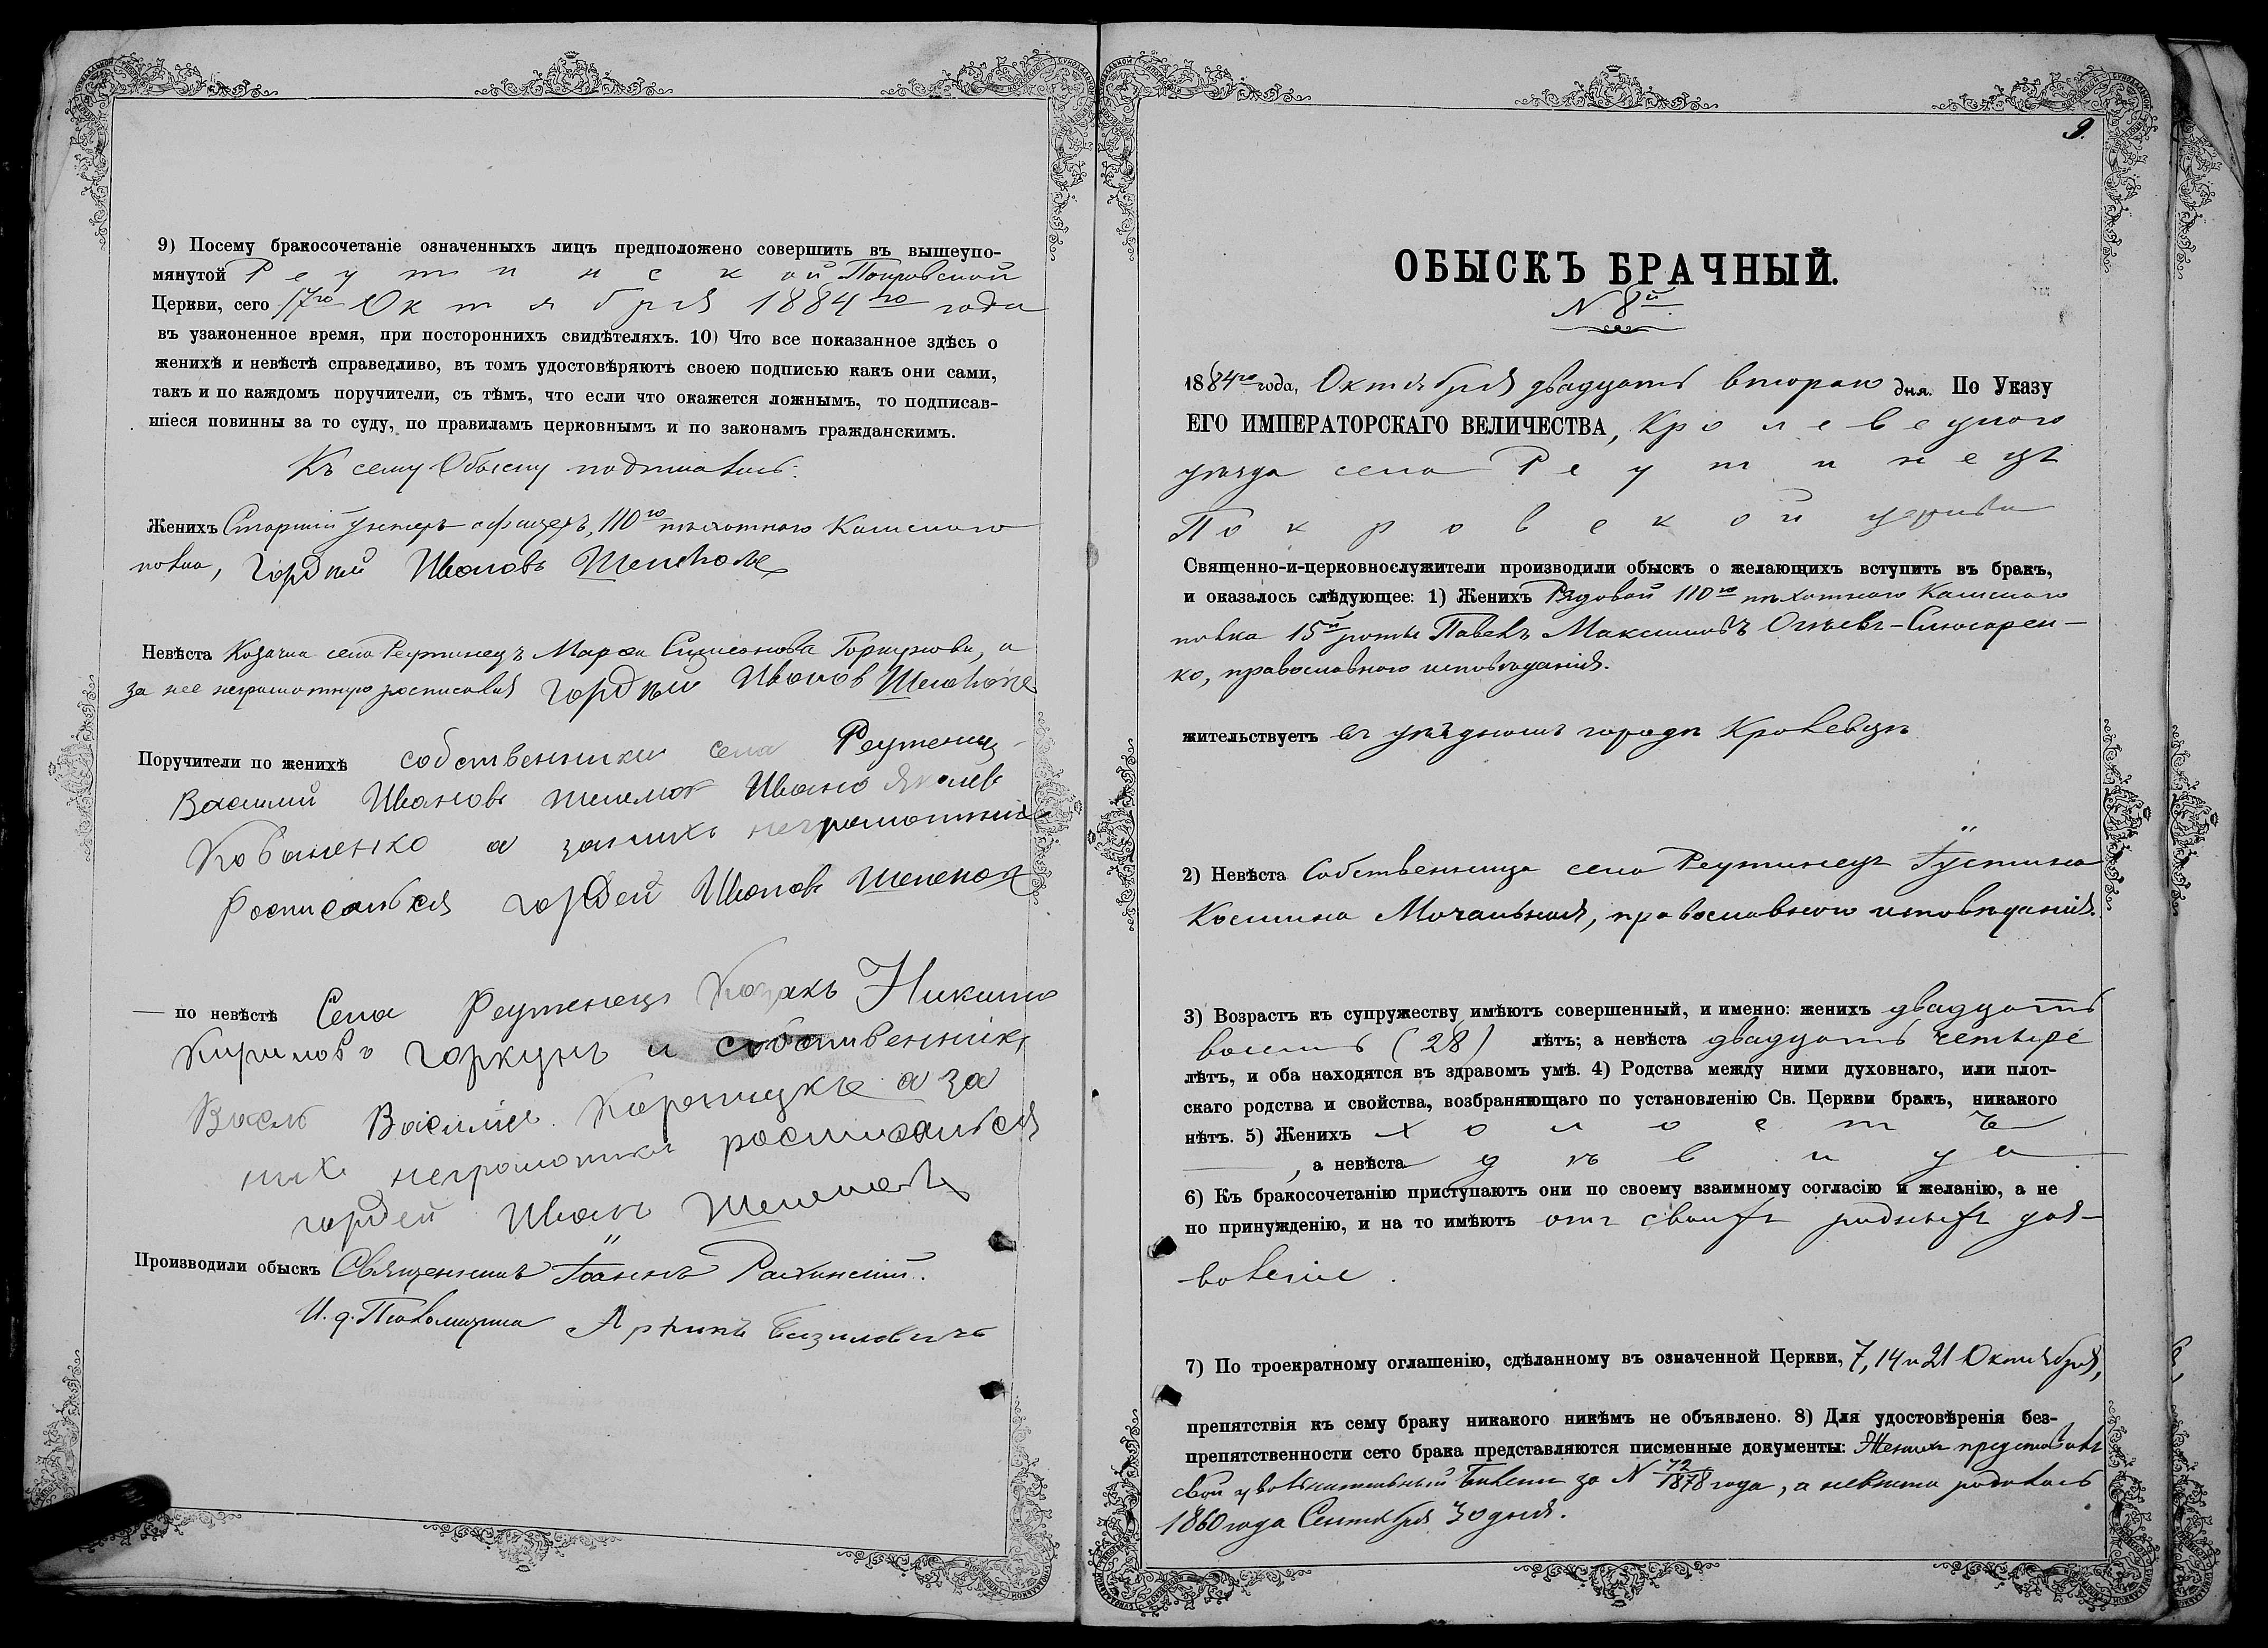 9) Посему бракосочетаніе означенныхъ лицъ предположено совершить въ вышеупо-
мянутой Реутинской Покровской
Церкви, сего 17го Октября 1884го года
въ узаконенное время, при постороннихъ свидѣтеляхъ. 10) Что все показанное здѣсь о
женихѣ и невѣстѣ справедливо, въ томъ удостовѣряютъ своею подписью какъ они сами,
такъ и по каждомъ поручители, съ тѣмъ, что если что окажется ложнымъ, то подписав-
шіеся повинны за то суду, по правиламъ церковнымъ и по законамъ гражданскимъ.
Къ сему Обыску подписались:
Женихъ Старшій унтеръ офицеръ, 110го пѣхотного Камского
полка, Гордѣй Ивановъ
Невѣста Козачка села Реутинецъ Марфа Симеонова Горкунова, а
за нее неграмотную росписался Гордѣй Иванов
Поручители по женихѣ собственники села Реутенец
Василий Ивановъ Иванъ Яколев
Коваленко а за них неграмотних
Росписался Гордей Иванов
— по невѣстѣ Села Реутенецъ Козакъ Никита
Кириловъ Горкунъ и собственникъ
Василий а за
них неграмотних росписался
Гордей Иванъ
Производили обыскъ Священникъ Іоаннъ
И. д. Псаломщика
9.
ОБЫСКЪ БРАЧНЫЙ.
N 8й.
1884го года, Октября двадцать второго дня. По Указу
ЕГО ИМПЕРАТОРСКАГО ВЕЛИЧЕСТВА, Кролевецкого
уѣзда села Реутинецъ
Покровской церкви
Священно-и-церковнослужители производили обыскъ о желающихъ вступить въ бракъ,
и оказалось слѣдующее: 1) Женихъ Рядовой 110го пѣхотного Камского
полка 15й роты Павелъ Максимовъ Огіевъ-Слюсарен-
ко, православного исповѣданія.
жительствуетъ въ уѣздномъ городѣ Кролевцѣ
2) Невѣста Собственница села Реутинецъ Іустина
Космина Мочальная, православного исповѣданія.
3) Возрастъ къ супружеству имѣютъ совершенный, и именно: женихъ двадцать
восемь (28) лѣтъ; а невѣста двадцать четыре
лѣтъ, и оба находятся въ здравомъ умѣ. 4) Родства между ними духовнаго, или плот-
скаго родства и свойства, возбраняющаго по установленію Св. Церкви бракъ, никакого
нѣтъ. 5) Женихъ холостъ
, а невѣста дѣвица.
6) Къ бракосочетанію приступаютъ они по своему взаимному согласію и желанію, а не
по принужденію, и на то имѣютъ отъ своихъ родныхъ доз-
воленіе.
7) По троекратному оглашенію, сдѣланному въ означенной Церкви, 7, 14 и 21 Октября,
препятствія къ сему браку никакого никѣмъ не объявлено. 8) Для удостовѣренія без-
препятственности сего брака представляются писменные документы: Женихъ представилъ
свой увольнительный билетъ за N 72/1878 года, а невѣста родилась
1860 года Сентября 30 дня.